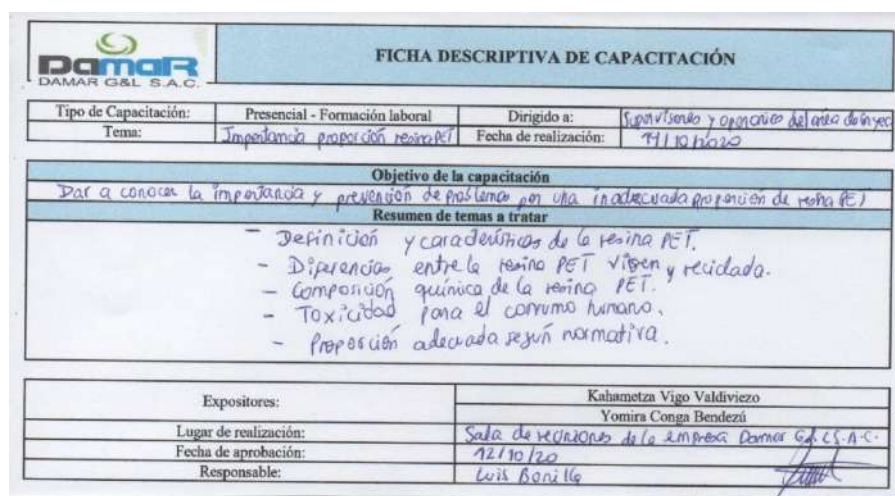 DamaR
DAMAR G&L S.A.C.
FICHA DESCRIPTIVA DE CAPACITACIÓN
Tipo de Capacitación: Presencial - Formación laboral Dirigido a: Supervisores y operarios del area de inyec
Tema: Importancia proporción resina PET Fecha de realización: 14/10/2020
Objetivo de la capacitación
Dar a conocer la importancia y prevención de problemas por una inadecuada proporción de resina PET
Resumen de temas a tratar
- Definición y características de la resina PET.
- Diferencias entre la resina PET virgen y reciclada.
- Composición química de la resina PET.
- Toxicidad para el consumo humano.
- Proporción adecuada según normativa.
Expositores: Kahametza Vigo Valdiviezo
Yomira Conga Bendezú
Lugar de realización: Sala de reuniones de la empresa Damar G&L S.A.C.
Fecha de aprobación: 12/10/20
Responsable: Luis Bonilla